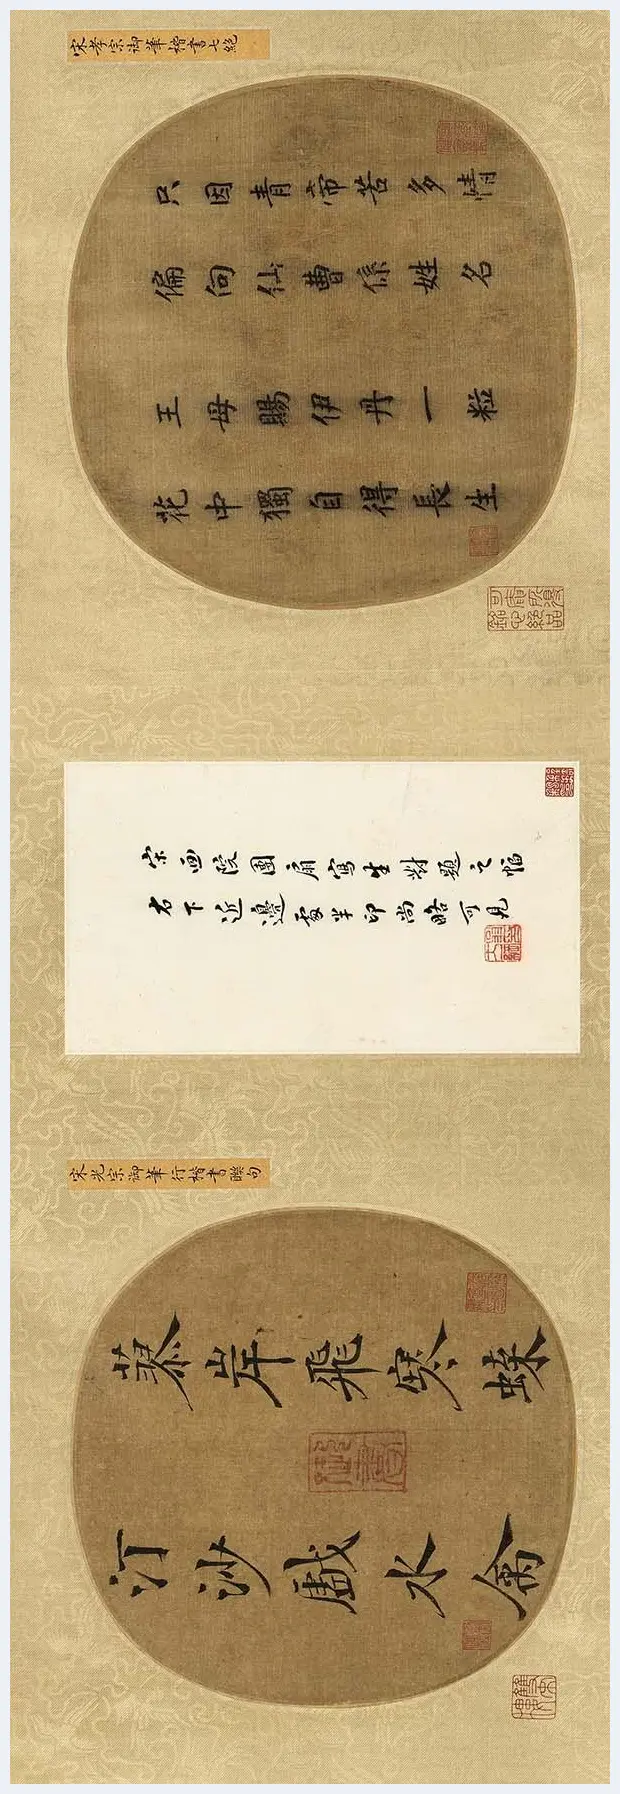 宋孝宗御筆楷書七絕
只因青帝苦多情
偏向仙曹係姓名
王母賜伊丹一粒
花中獨自得長生
宋画院團扇寫生對題之幅
右下近邊處半印尚略可見
宋光宗御筆行楷書聯句
蓼岸飛寒蝶
汀沙戲水禽